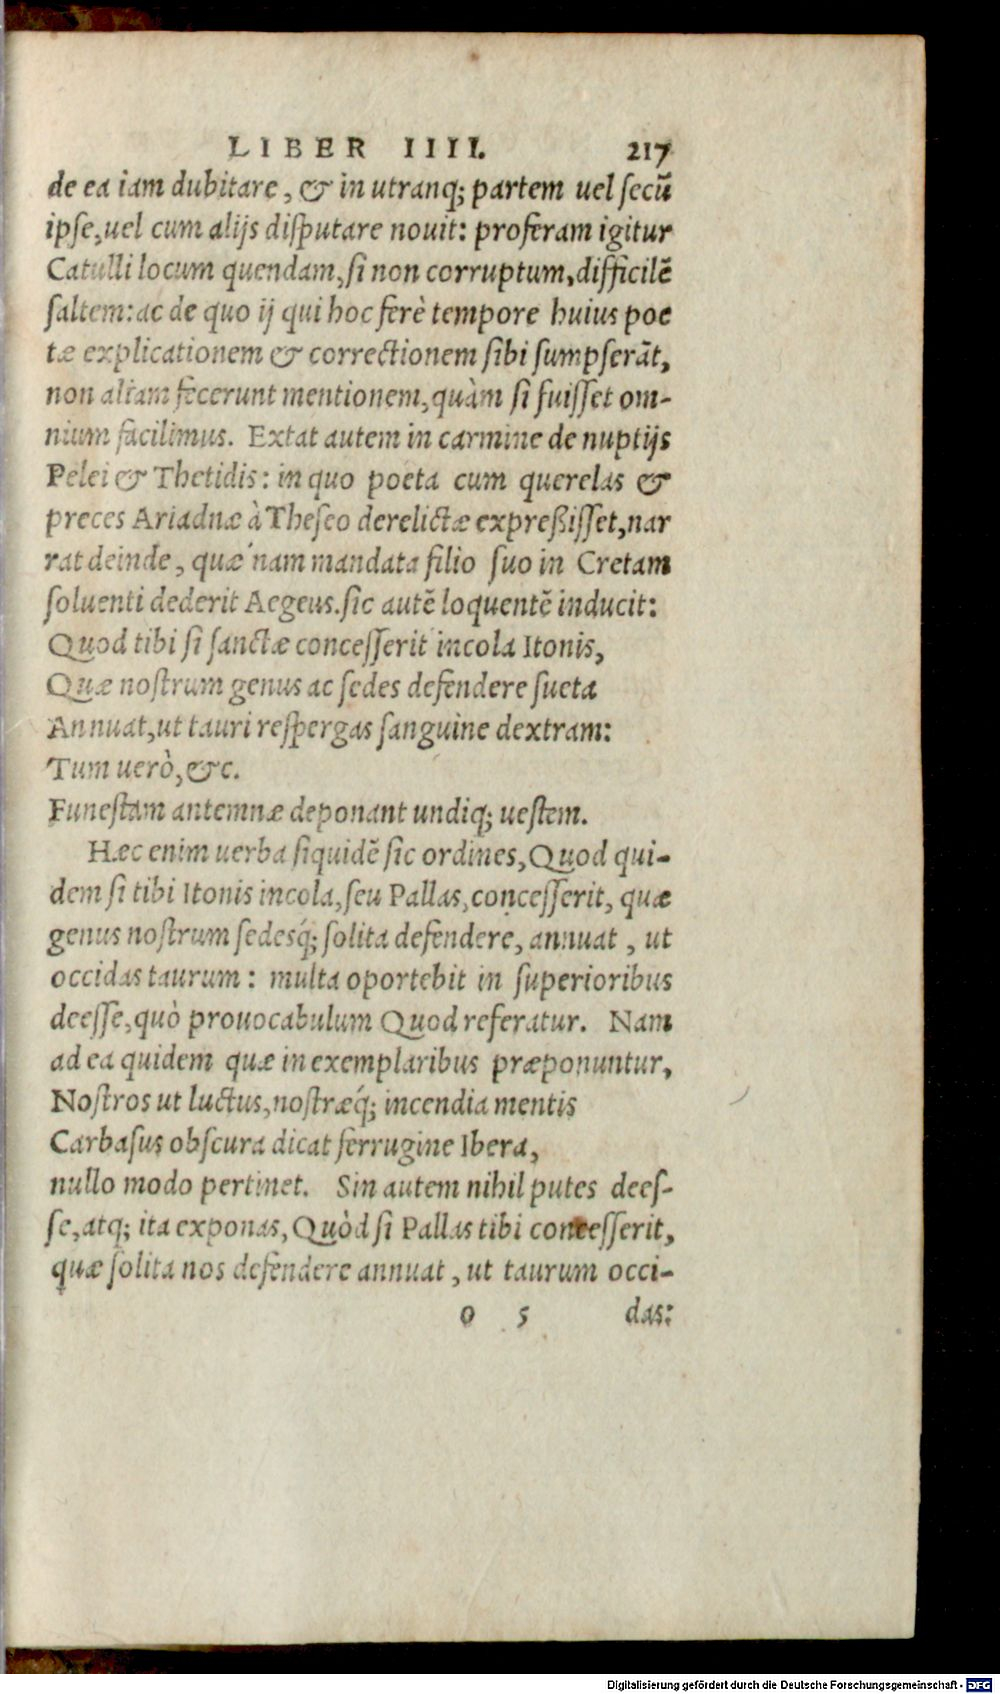 LIBER IIII. 217
de ea iam dubitare, & in utranq; partem uel secū
ipse, uel cum alijs disputare nouit: proferam igitur
Catulli locum quendam, si non corruptum, difficilē
saltem: ac de quo ij qui hoc ferè tempore huius poe
tæ explicationem & correctionem sibi sumpserāt,
non aliam fecerunt mentionem, quàm si fuisset om-
nium facilimus. Extat autem in carmine de nuptijs
Pelei & Thetidis: in quo poeta cum querelas &
preces Ariadnæ à Theseo derelictæ expreßisset, nar
rat deinde, quæ nam mandata filio suo in Cretam
soluenti dederit Aegeus. sic autē loquentē inducit:
Quod tibi si sanctæ concesserit incola Itonis,
Quæ nostrum genus ac sedes defendere sueta
Annuat, ut tauri respergas sanguine dextram:
Tum uerò, &c.
Funestam antemnæ deponant undiq; uestem.
Hæc enim uerba siquidē sic ordines, Quod qui-
dem si tibi Itonis incola, seu Pallas, concesserit, quæ
genus nostrum sedesq́; solita defendere, annuat, ut
occidas taurum: multa oportebit in superioribus
deesse, quò prouocabulum Quod referatur. Nam
ad ea quidem quæ in exemplaribus præponuntur,
Nostros ut luctus, nostræq́; incendia mentis
Carbasus obscura dicat ferrugine Ibera,
nullo modo pertinet. Sin autem nihil putes dees-
se, atq; ita exponas, Quòd si Pallas tibi concesserit,
quæ solita nos defendere annuat, ut taurum occi-
o 5 das:
Digitalisierung gefördert durch die Deutsche Forschungsgemeinschaft - DFG